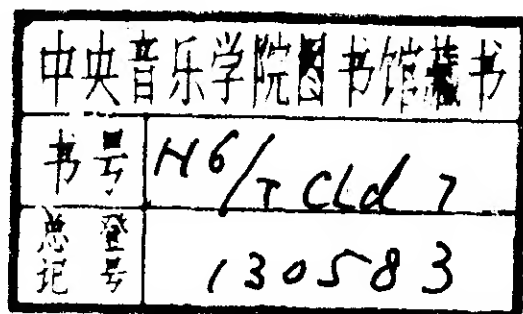 中央音乐学院图书馆藏书
书号 H6/TCLd7
总登记号 130583